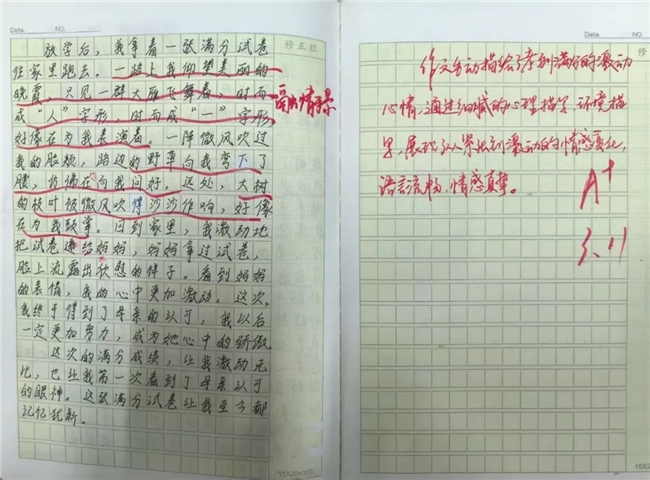 Date. NO.
修正栏
放学后，我拿着一张满分试卷
往家里跑去。一路上我仰望美丽的
晚霞，只见一群大雁飞舞着，时而
成“人”字形，时而成“一”字形，
好像在为我表演着。一阵微风吹过
我的脸颊，路边的野草向我弯下了
腰，仿佛在向我问好。远处，大树
的枝叶被微风吹得沙沙作响，好像
在为我鼓掌。回到家里，我激动地
把试卷递给妈妈，妈妈拿过试卷，
脸上流露出欣慰的样子。看到妈妈
的表情，我的心中更加激动。这次，
我终于得到了母亲的认可，我以后
一定更加努力，成为她心中的骄傲。
这次的满分成绩，让我激动无
比，也让我第一次看到了母亲认可
的眼神。这张满分试卷让我至今都
记忆犹新。
15X20=300
融情于景
Date. NO.
作文生动描绘了考到满分的激动
心情，通过细腻的心理描写、环境描
写，展现了从紧张到激动的情感变化，
语言流畅，情感真挚。
A+
3.11